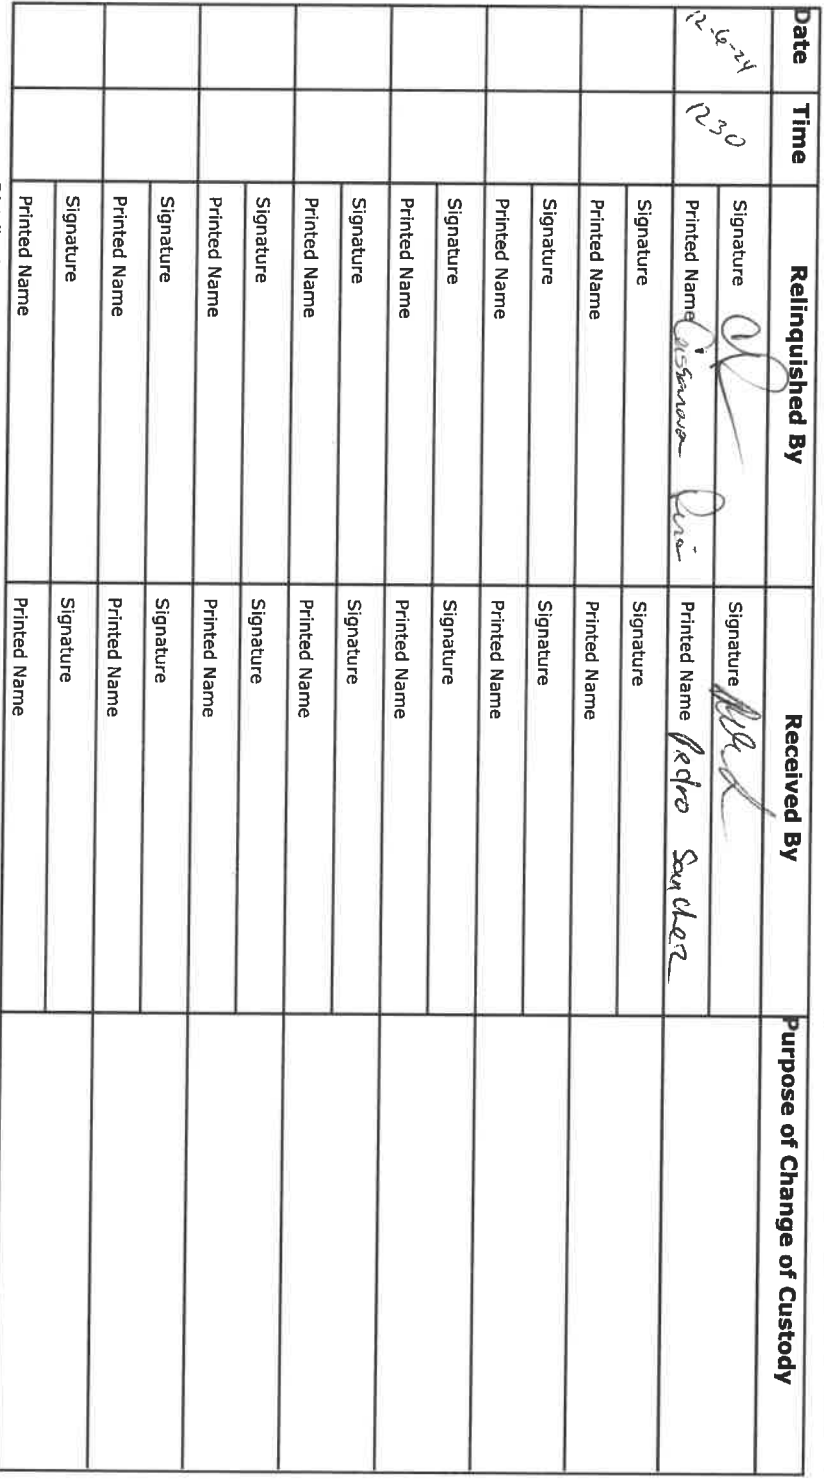 Date Time Relinquished By Received By Purpose of Change of Custody
12-6-24 1230 Signature Signature
Printed Name Printed Name Pedro Sanchez
Signature Signature
Printed Name Printed Name
Signature Signature
Printed Name Printed Name
Signature Signature
Printed Name Printed Name
Signature Signature
Printed Name Printed Name
Signature Signature
Printed Name Printed Name
Signature Signature
Printed Name Printed Name
Signature Signature
Printed Name Printed Name